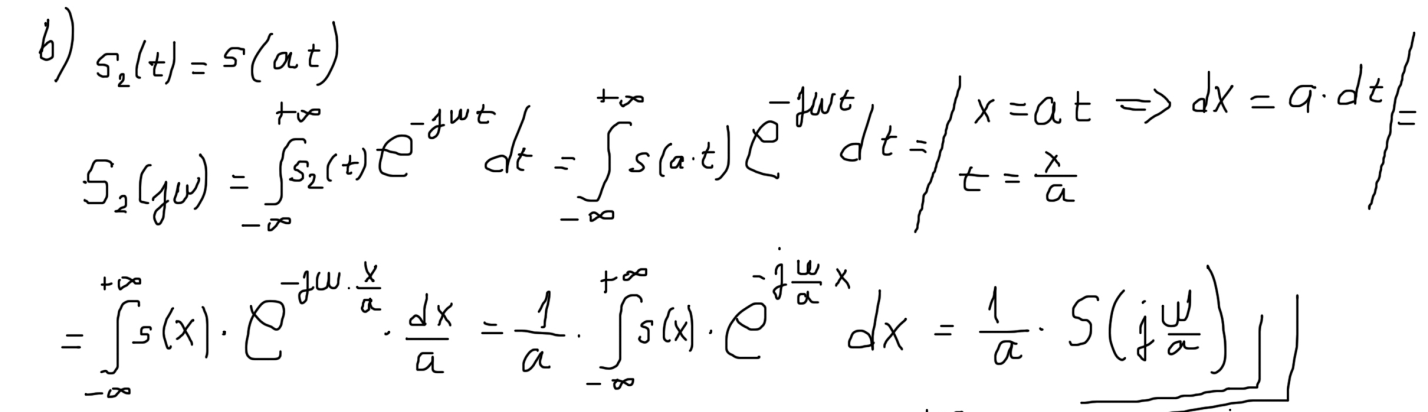 b) s₂(t) = s(at)
S₂(jω) = ∫_{-∞}^{+∞} s₂(t) e^{-jωt} dt = ∫_{-∞}^{+∞} s(a·t) e^{-jωt} dt = | x = at => dx = a·dt | =
t = x/a
= ∫_{-∞}^{+∞} s(x) · e^{-jω·x/a} · dx/a = 1/a · ∫_{-∞}^{+∞} s(x) · e^{-j(ω/a)x} dx = 1/a · S(j ω/a)